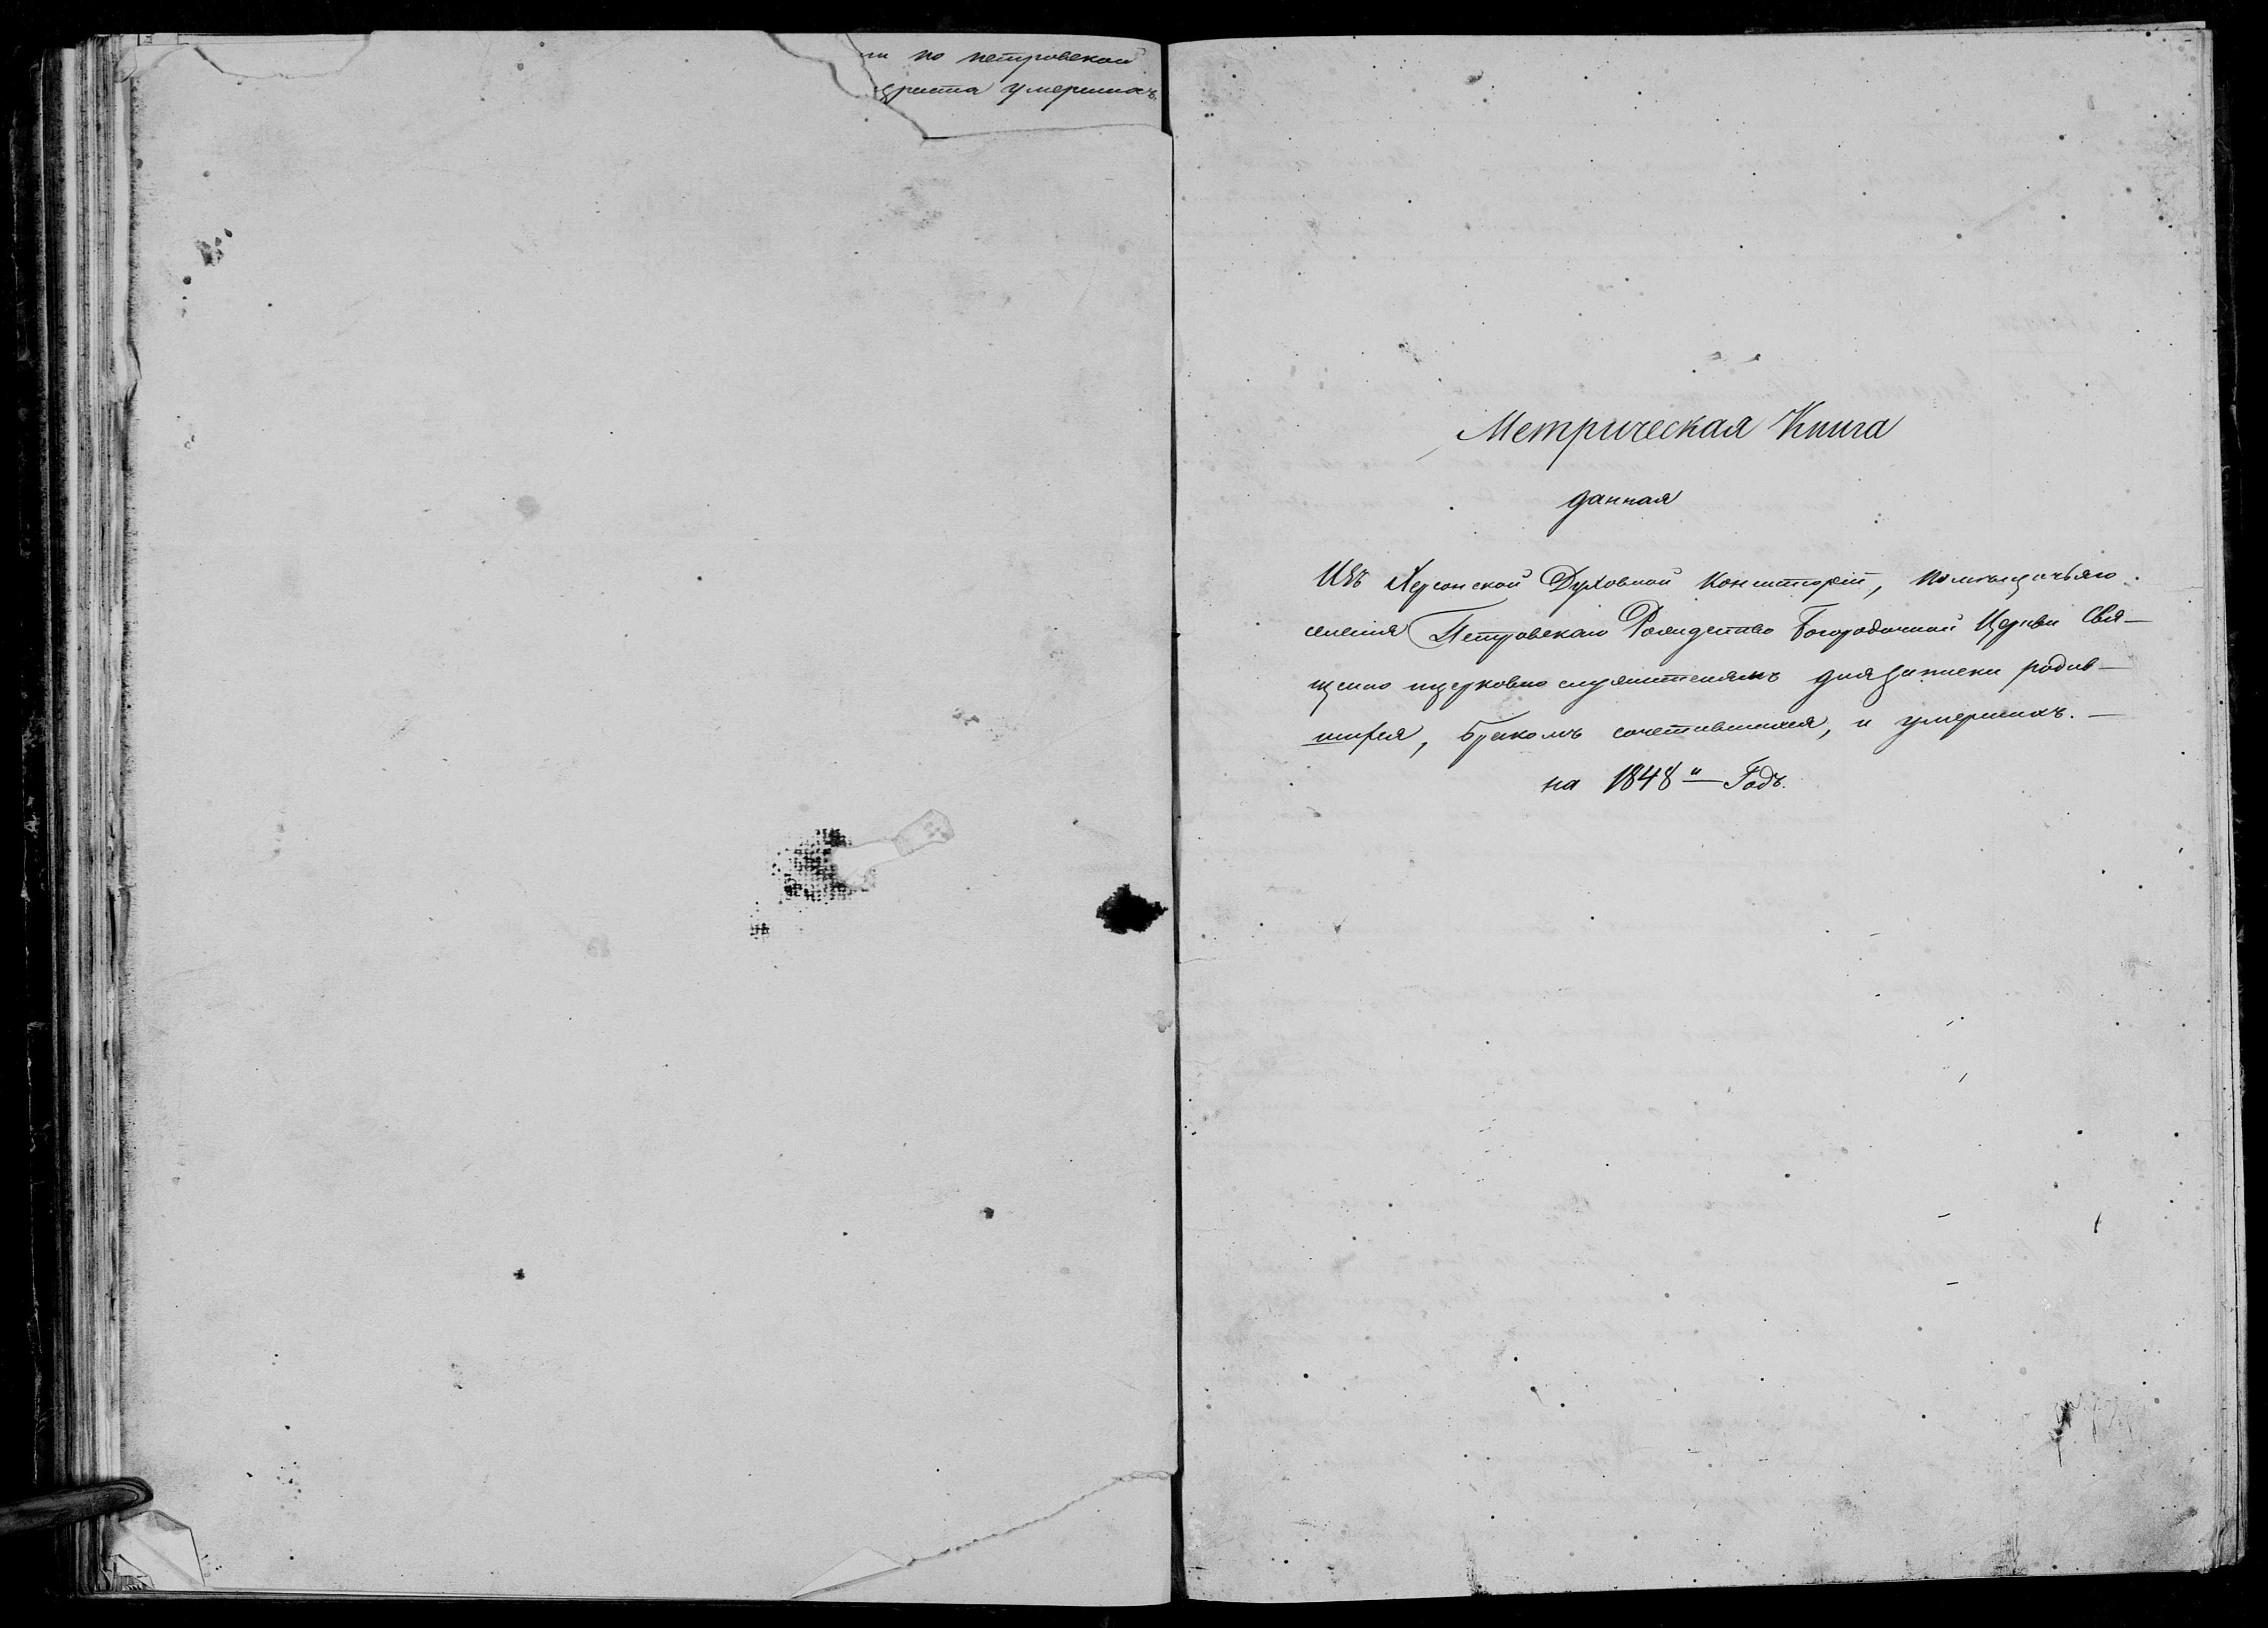 по петровской
умершихъ.
Метрическая Книга
данная
Изъ Херсонской Духовной Консисторіи, помѣщичьяго
селенія Петровскаго Рождество Богородичной Церкви Свя-
щенно пцерковно служителямъ для записки родив-
шихся, Бракомъ сочетавшихся, и умершихъ. -
на 1848 " Годъ.